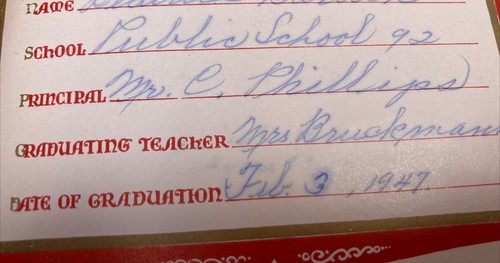 NAME
SCHOOL Public School 92
PRINCIPAL Mr. C. Phillips
GRADUATING TEACHER Mrs Bruckman
DATE OF GRADUATION Feb. 3, 1947.